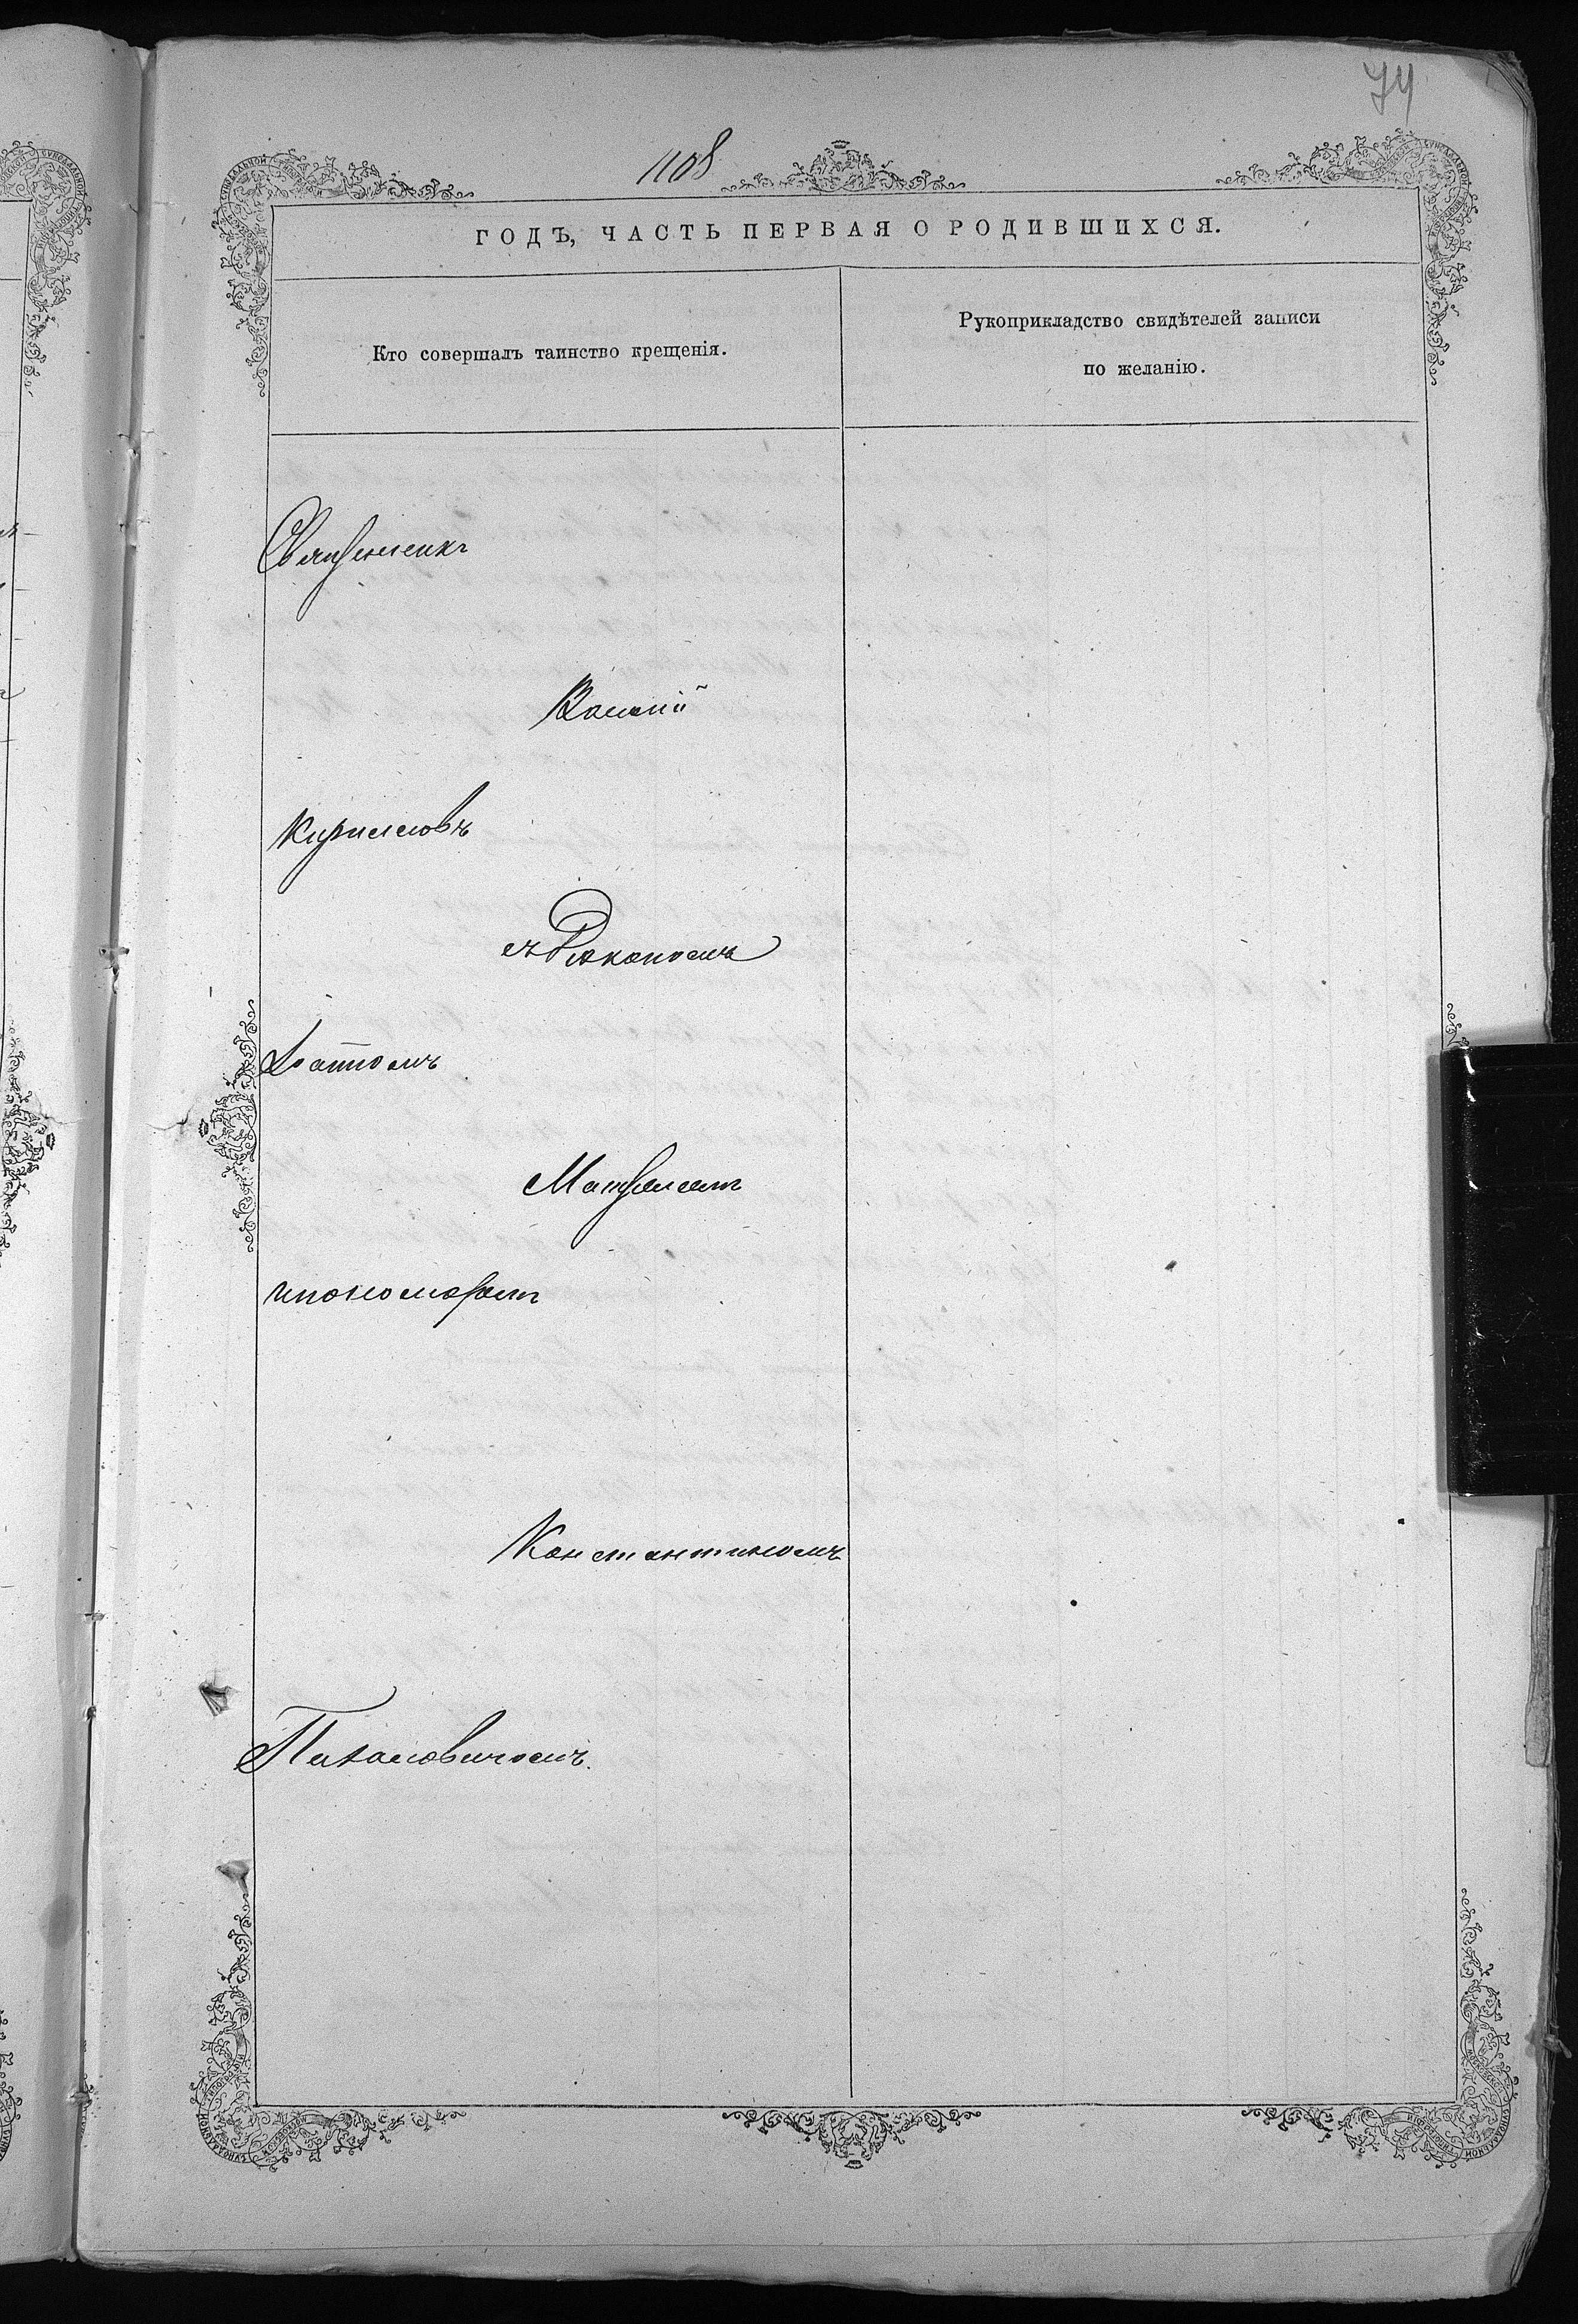 74
1108
ГОДЪ, ЧАСТЬ ПЕРВАЯ О РОДИВШИХСЯ.
Кто совершалъ таинство крещенія.
Рукоприкладство свидѣтелей записи
по желанію.
Священникъ
Василій
Кирилловъ
съ Діакономъ
Іоанномъ
и пономаремъ
Константиномъ